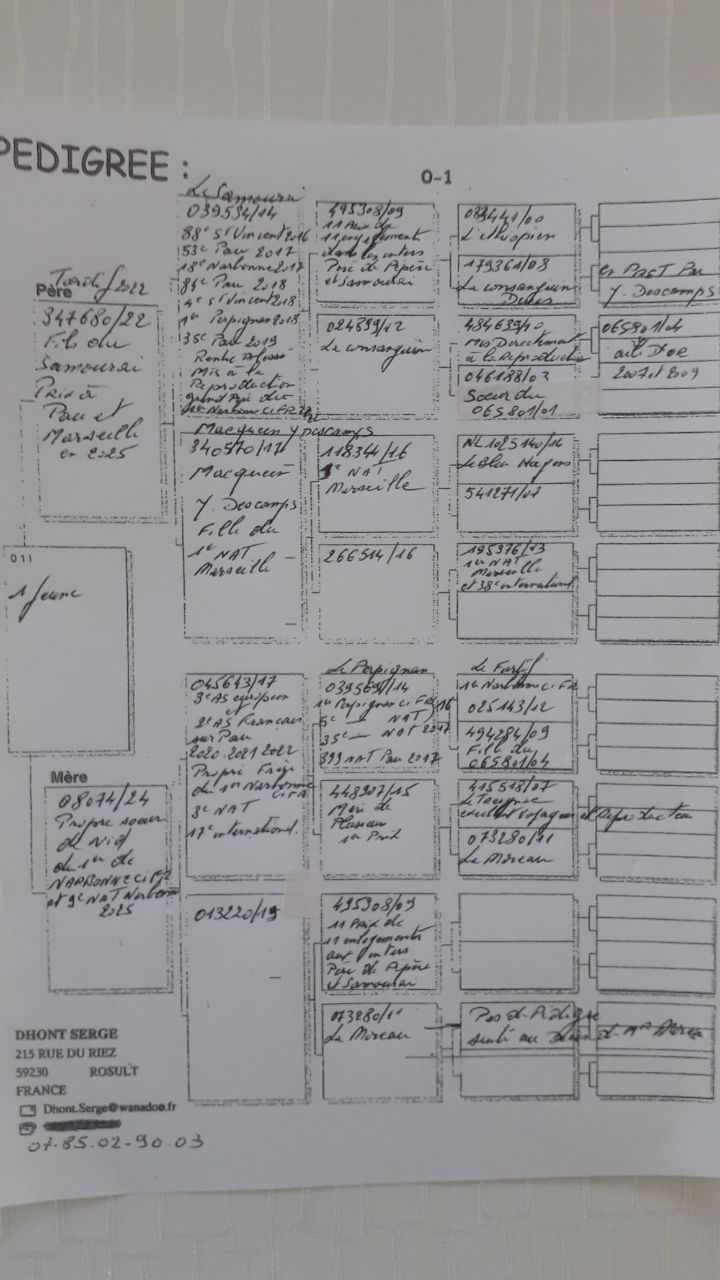 PEDIGREE :
0-1
Père
Tardif 2022
347680/22
Fils du
Samourai
Prix à
Pau et
Marseille
en 2025
011
1 Jeune
Mère
08074/24
Propre soeur
de Nid
du 1er de
NARBONNE CIFR
et 9e NAT Narbonne
2025
Le Samourai
039534/14
88e St Vincent 2016
53e Pau 2017
18e Narbonne 2017
81e Pau 2018
4e St Vincent 2018
1er Perpignan 2018
35e Pau 2019
Rentré blessé
Mis à la
Reproduction
grand Père du
1er Narbonne CIFR
Macquein Y Descamps
340570/17
Macquein
Y. Descamps
Fille du
1e NAT
Marseille
045643/17
3e AS européen
et
2e AS Français
sur Pau
2020-2021-2022
Propre Frère
du 1er Narbonne
CIFR
3e NAT
17e international.
013220/19
495308/09
11 Prix de
11 engagements
dans les inters
Père de Pépère
et Samourai
024899/12
La consanguin
118344/16
1e NAT
Marseille
266514/16
Le Perpignan
039569/14
1er Perpignan CIFR 16
5e — NAT
35e — NAT 2017
399 NAT Pau 2017
448907/15
Mère de
Plusieurs
1er Prix
495308/09
11 Prix de
11 engagements
aux inters
Père de Pépère
et Samourai
073280/11
La Moreau
083441/00
L'ethiopien
179361/08
La consanguin
484639/10
Mis Directement
à la Reproduction
046188/03
Soeur du
065801/01
NL 1025140/14
Le Bleu Hagens
541271/07
195376/13
1er NAT
Marseille
et 38e international
Le Furtif
1er Narbonne CIFR
025143/12
494284/09
Fille du
065801/04
415518/07
excellent voyageur et reproducteur
073280/11
La Moreau
Pas de Pédigré
en Part Par
Y. Descamps
065801/04
aile D'or
2007 et 2009
DHONT SERGE
215 RUE DU RIEZ
59230 ROSULT
FRANCE
Dhont.Serge@wanadoo.fr
07.85.02.90.03